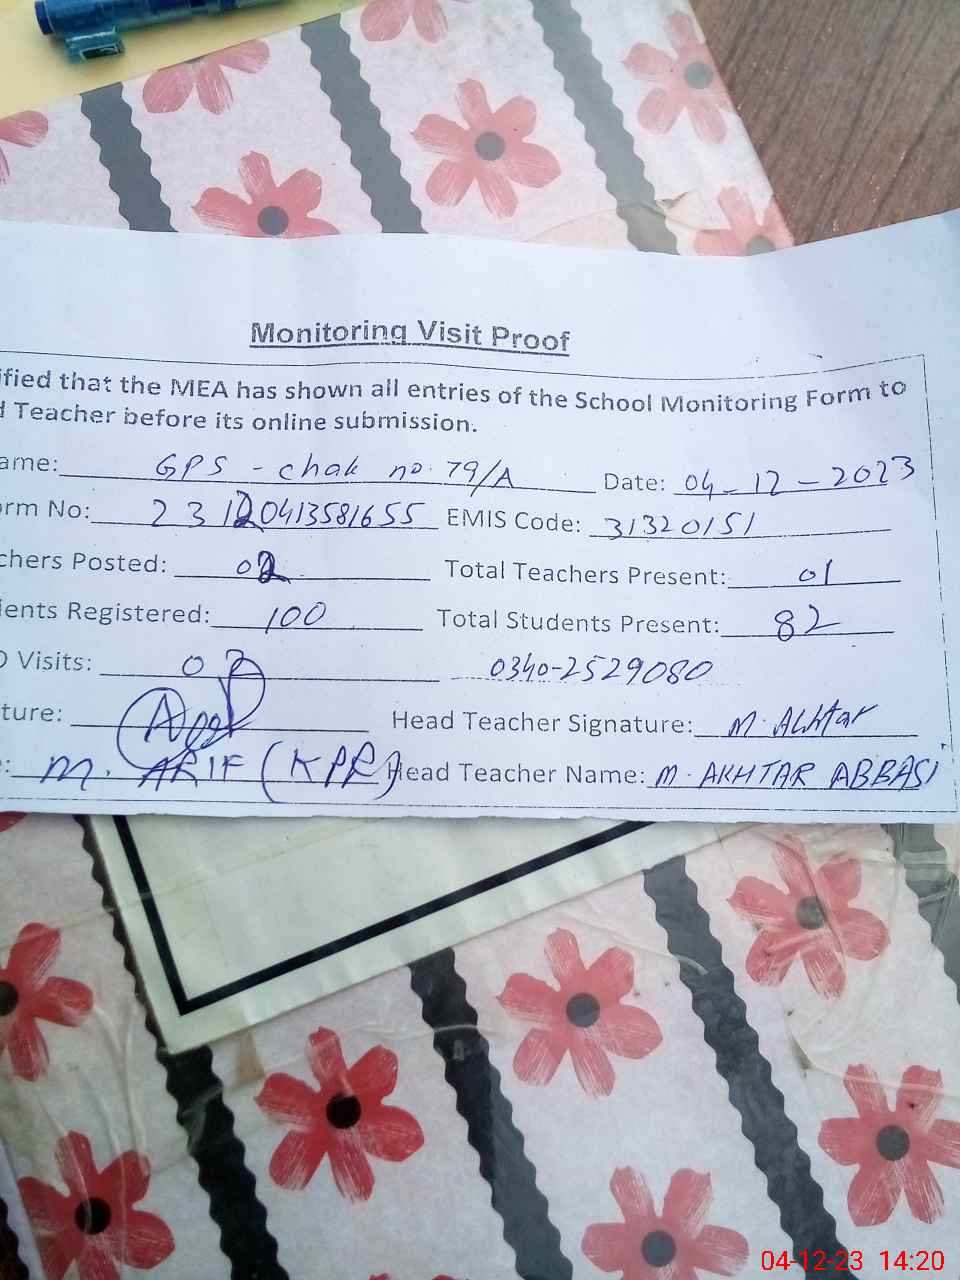 Monitoring Visit Proof
ified that the MEA has shown all entries of the School Monitoring Form to
d Teacher before its online submission.
ame: GPS - chak no. 79/A Date: 04-12-2023
rm No: 23120413581655 EMIS Code: 31320151
chers Posted: 02 Total Teachers Present: 01
ents Registered: 100 Total Students Present: 82
O Visits: 03 0340-2529080
ture: Head Teacher Signature: M. Akhtar
: M. ARIF (KPR) Head Teacher Name: M. AKHTAR ABBASI
04-12-23 14:20